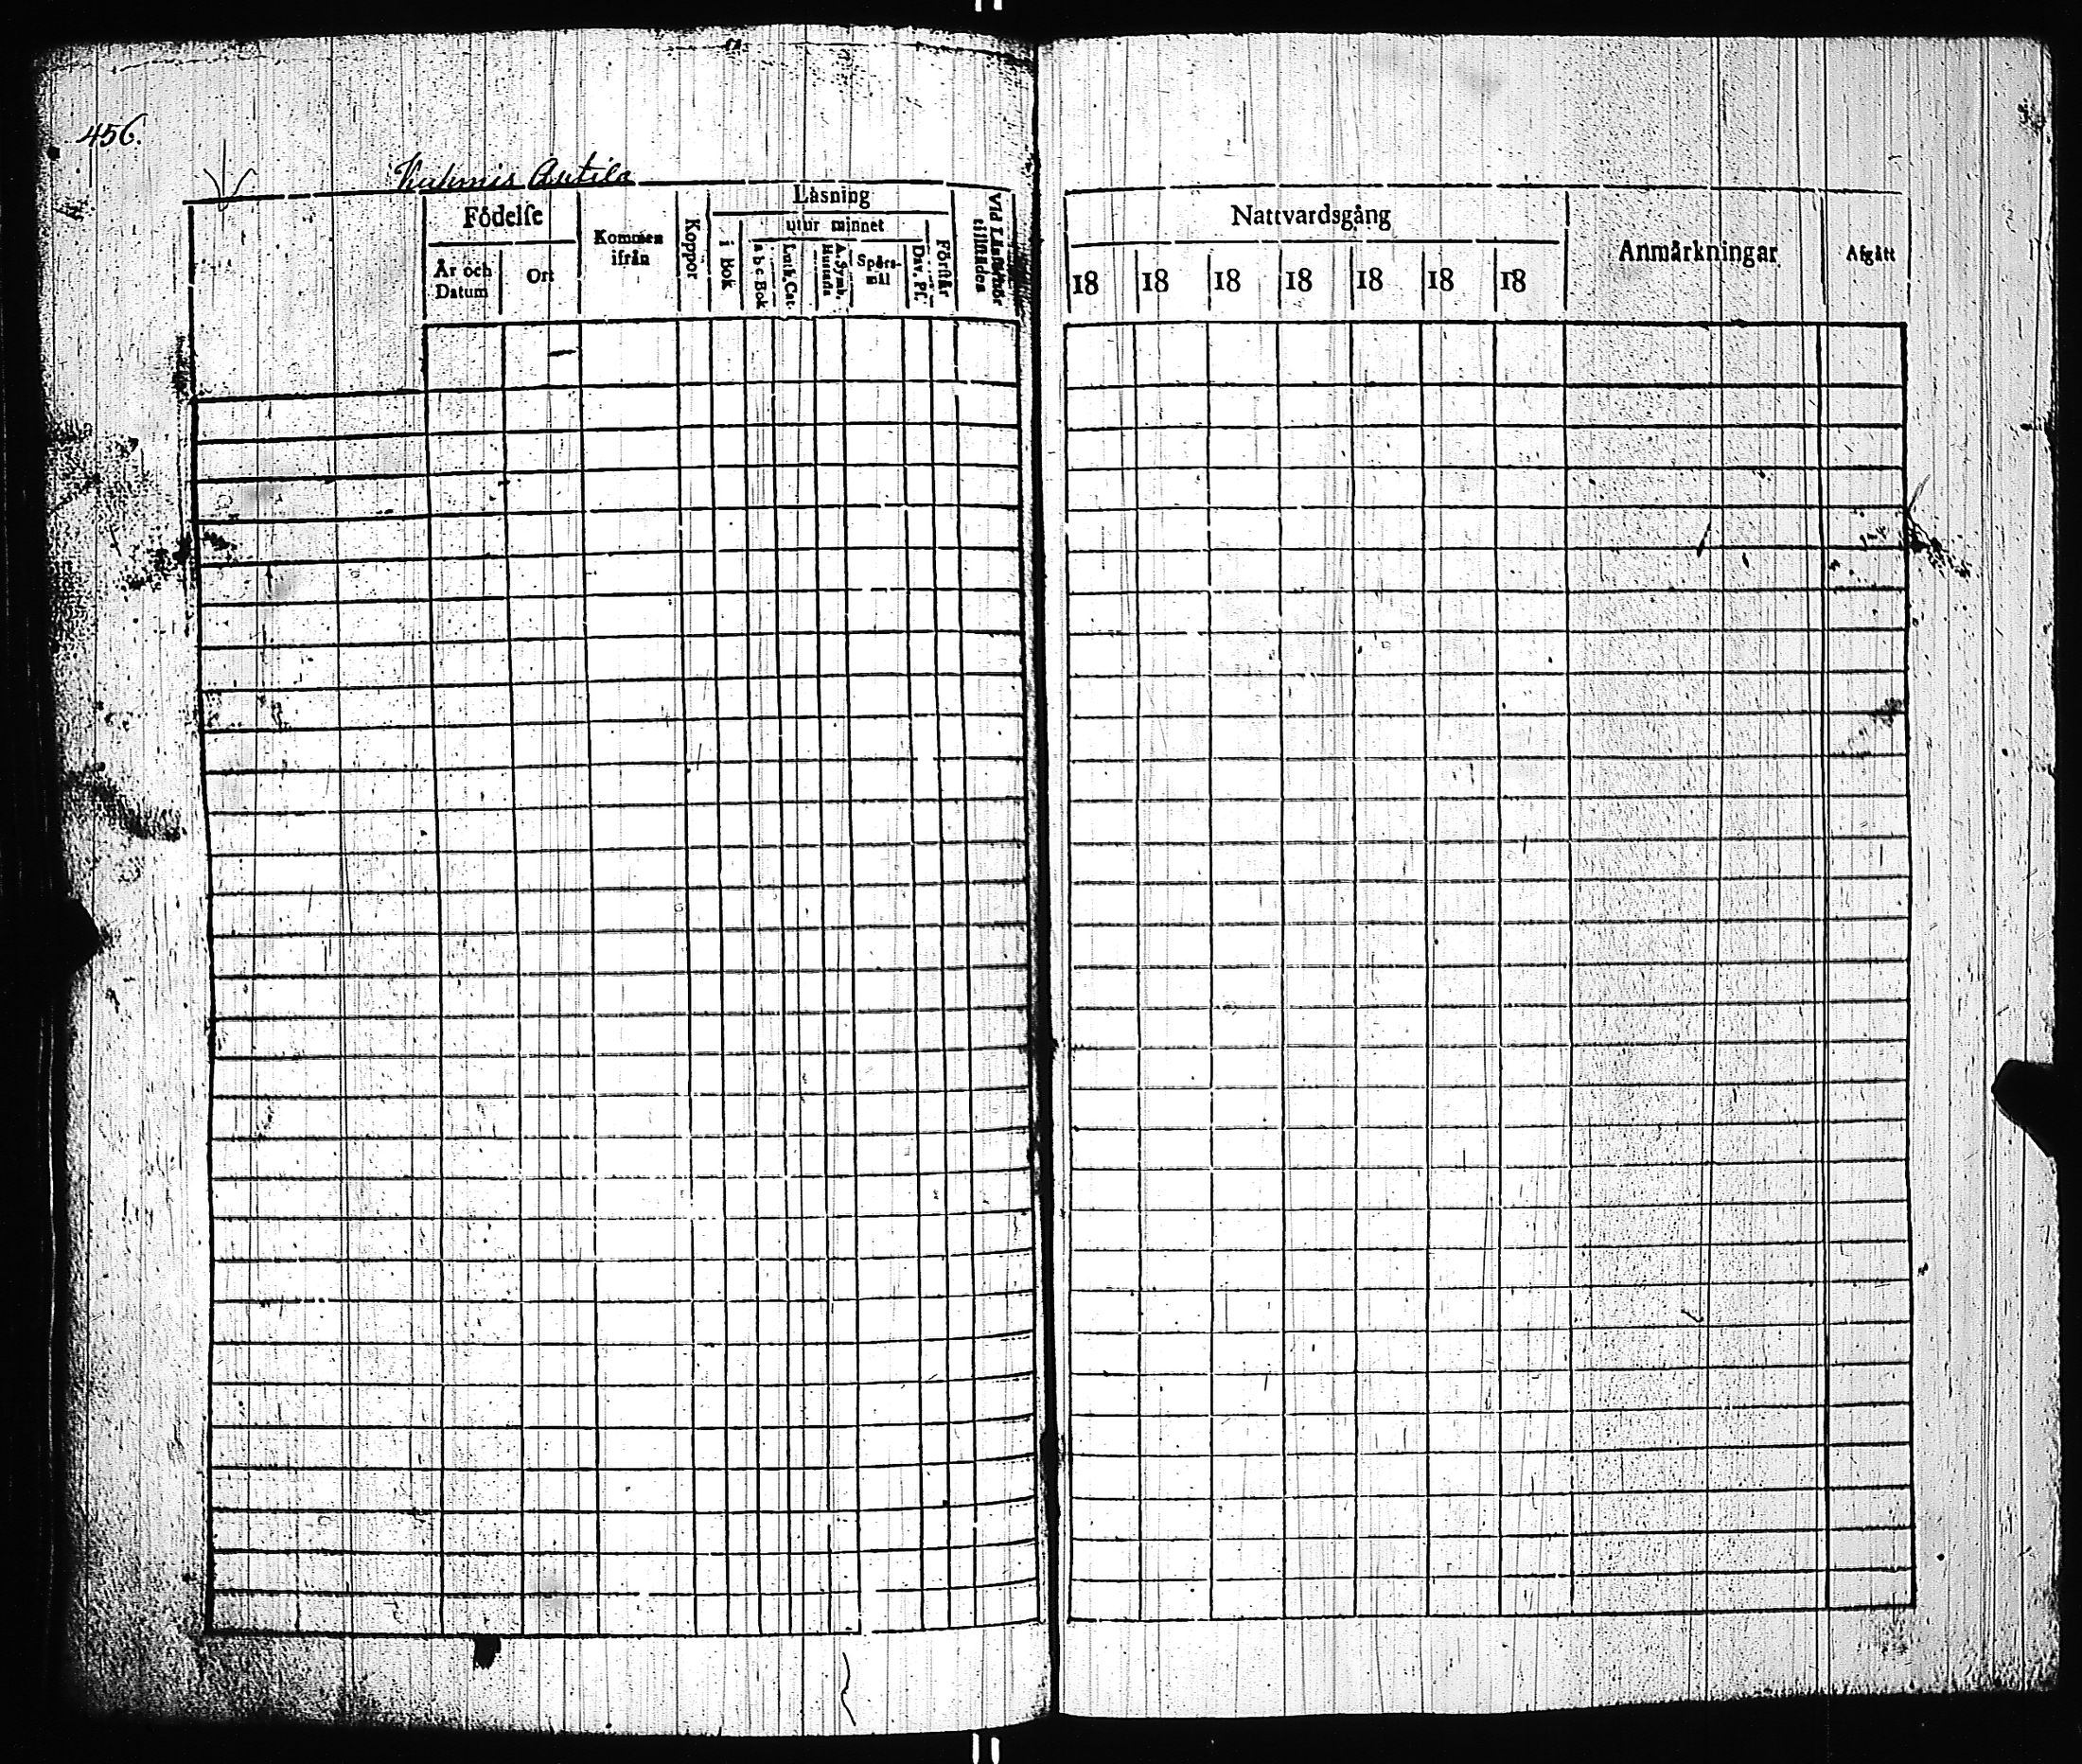 456.
Kuhmis Antila
Födelse
År och Datum
Ort
Kommen ifrån
Koppor
Läsning
i Bok
utur minnet
a b c Bok
Luth. Cat.
A. Symb. Hustafla
Spörs-mål
Dav. Ps.
Förstår
Vid Läsförhör tillstädes
Nattvardsgång
18 18 18 18 18 18 18
Anmärkningar
Afgått